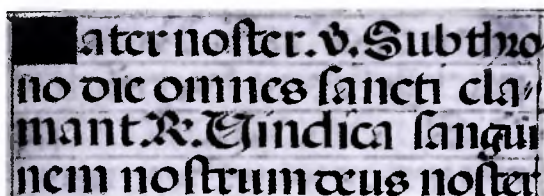 ater noster. V. Sub thro
no die omnes sancti cla⸗
mant. R. Vindica sangui
nem nostrum deus noster